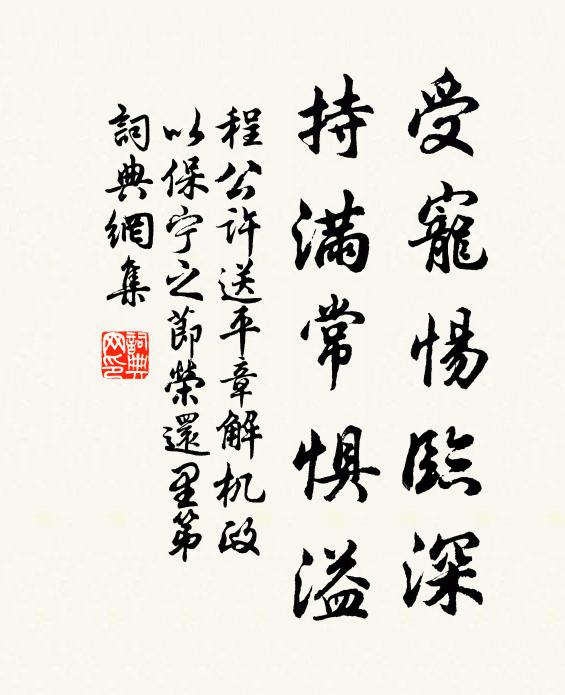 受寵惕臨深
持滿常懼溢
程公許送平章解机政
以保宁之節榮還里第
詞典網集
詞典網印